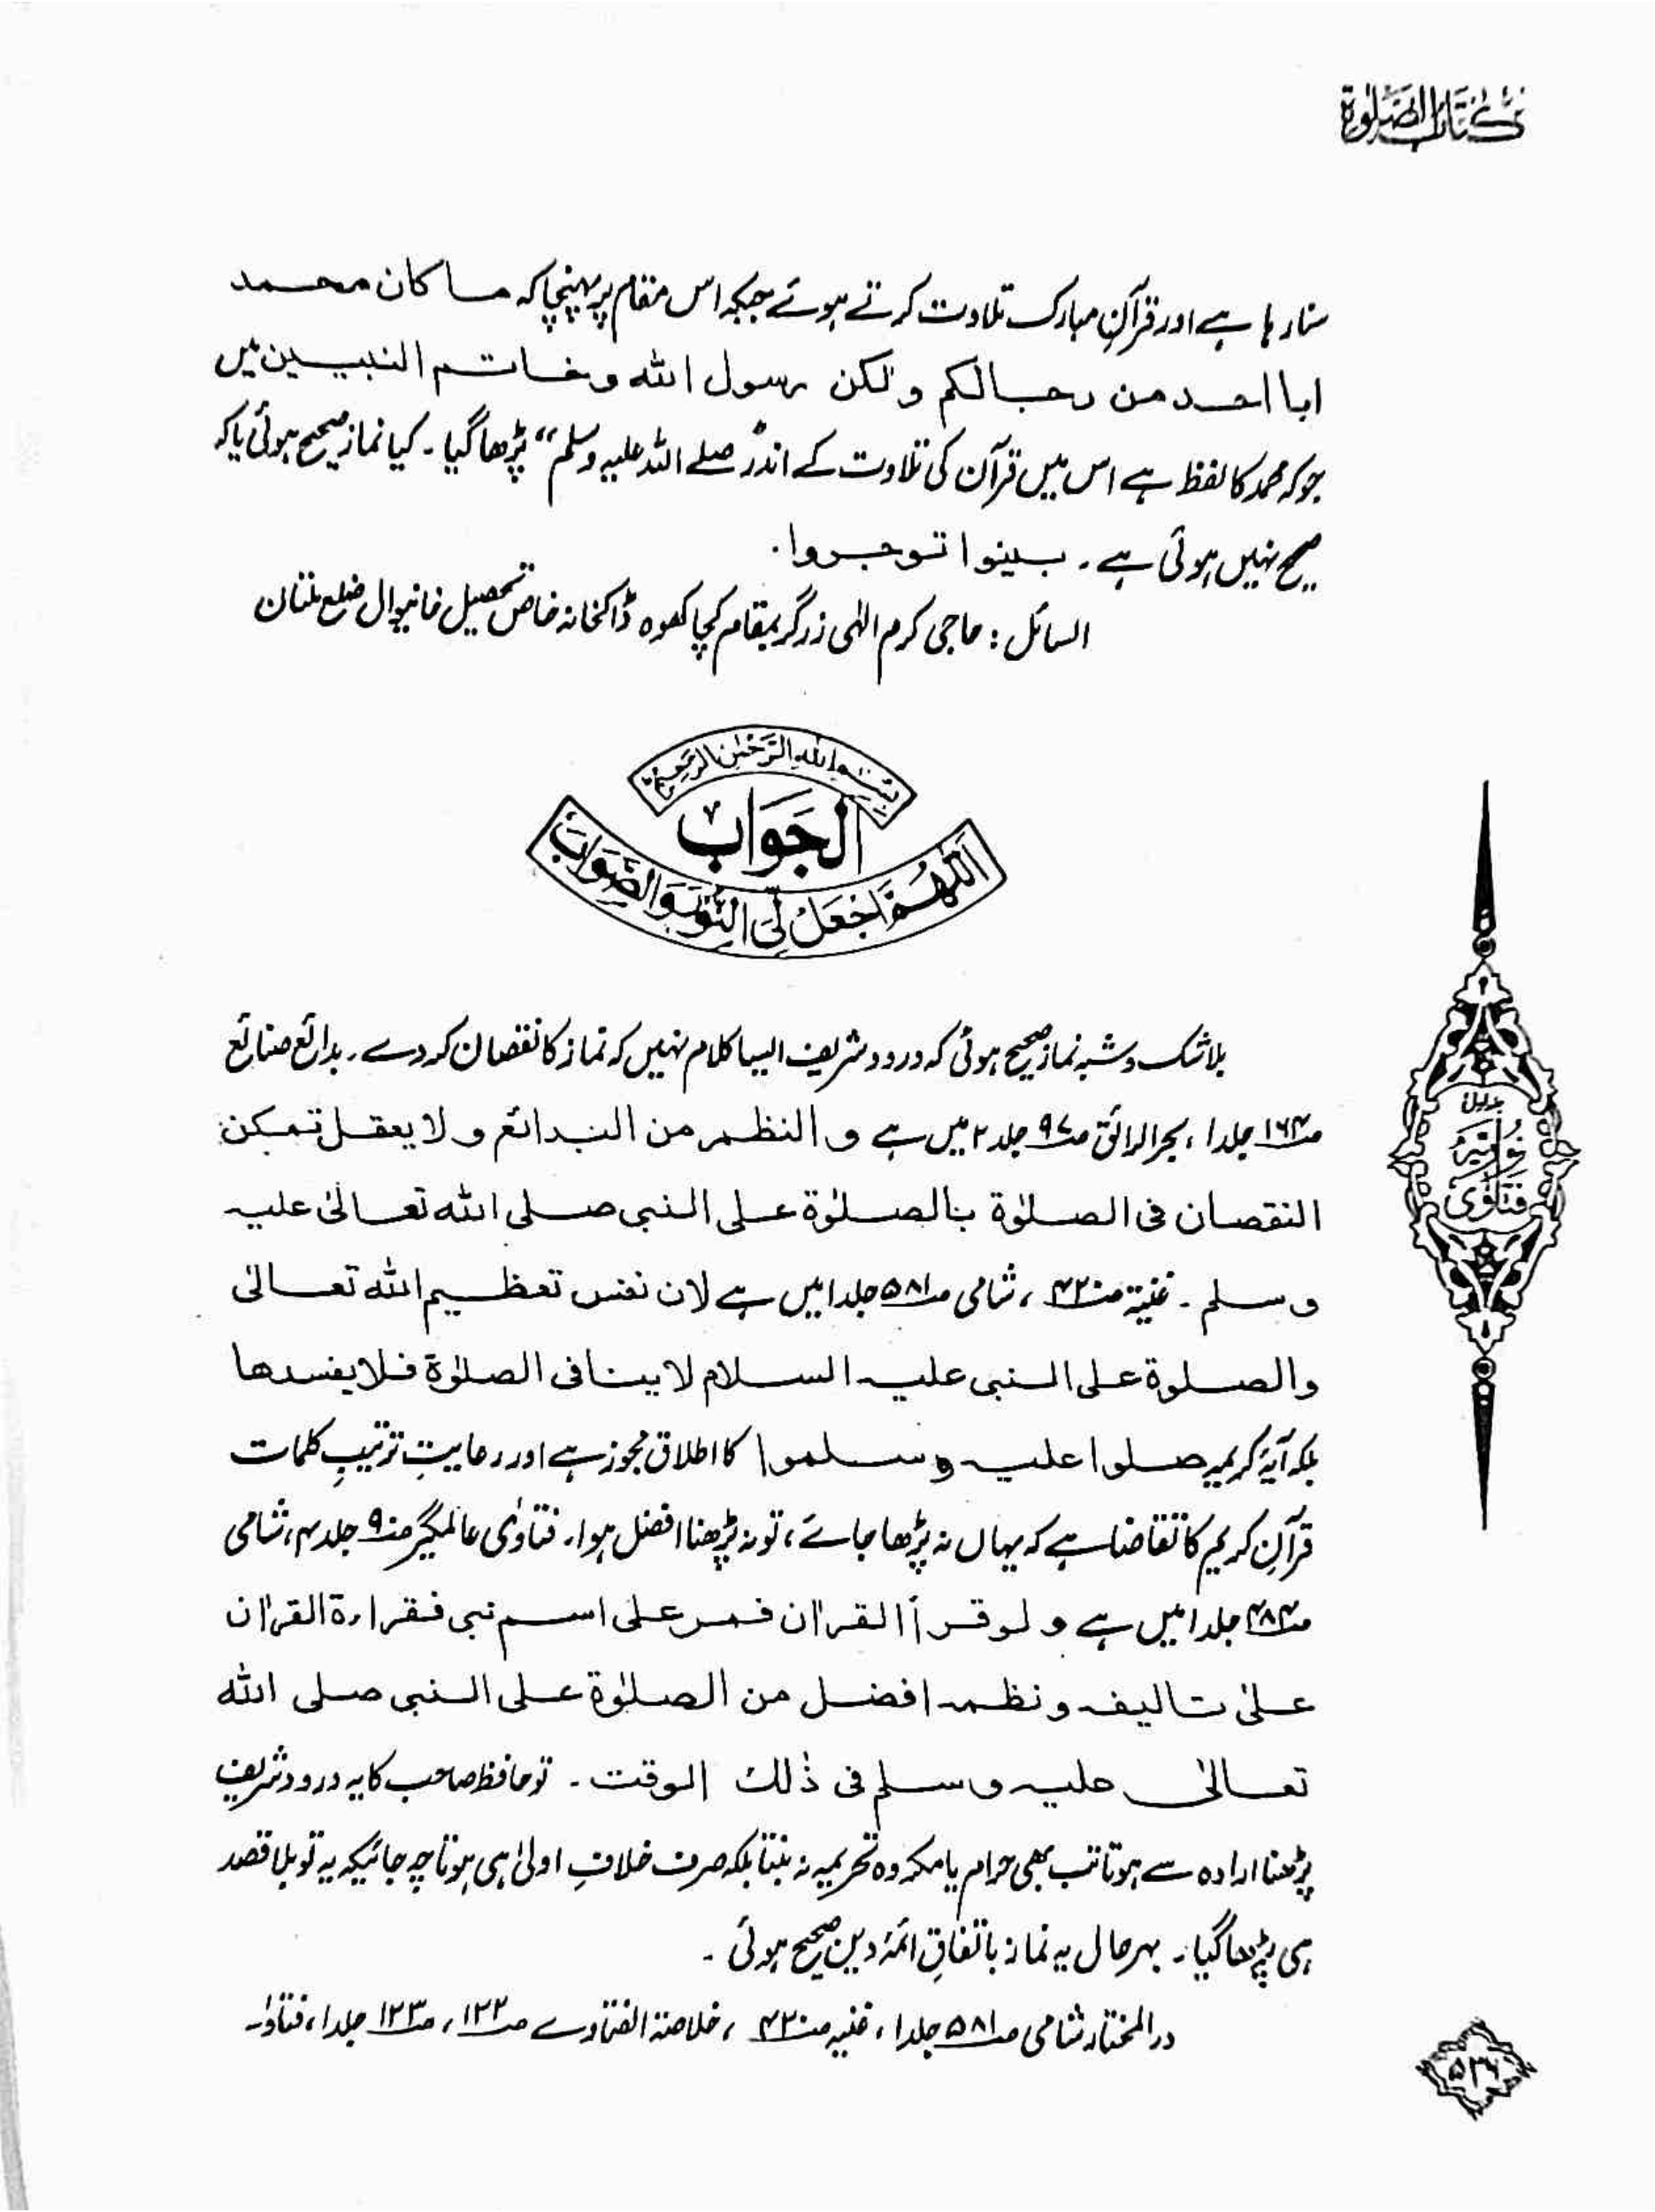 كتاب الصلوة
سنا رہا ہے اور قرآنِ مبارک تلاوت کرتے ہوئے جبکہ اس مقام پر پہنچا کہ ما كان محمد
ابا احد من رجالكم ولكن رسول الله وخاتم النبيين میں
جو کہ محمد کا لفظ ہے اس میں قرآن کی تلاوت کے اندر ”صلے اللہ علیہ وسلم“ پڑھا گیا۔ کیا نماز صحیح ہوئی یا کہ
صحیح نہیں ہوئی ہے۔ بينوا توجروا.
السائل: حاجی کرم الٰہی زرگر بمقام کچا کھوہ ڈاکخانہ خاص تحصیل خانیوال ضلع ملتان
بِسْمِ اللهِ الرَّحْمٰنِ الرَّحِيْمِ
الجَوَابُ
اَللّٰهُمَّ اجْعَلْ لِّيَ النُّوْرَ وَالصَّوَابَ
بلا شک و شبہ نماز صحیح ہوئی کہ درود شریف ایسا کلام نہیں کہ نماز کا نقصان کر دے۔ بدائع صنائع
صـ١٦٤ جلد ١، بحر الرائق صـ٩٧ جلد ٢ میں ہے و النظم من البدائع و لا يعقل تمكن
النقصان فى الصلوٰة بالصلوٰة على النبى صلى الله تعالىٰ عليه
وسلم۔ غنیۃ صـ٤٢٠، شامی صـ٥٨١ جلد ١ میں ہے لان نفس تعظيم الله تعالىٰ
والصلوة على النبى عليه السلام لا ينافى الصلوٰة فلا يفسدها
بلکہ آیۂ کریمہ صلوا عليه وسلموا کا اطلاق مجوز ہے اور رعایتِ ترتیبِ کلمات
قرآنِ کریم کا تقاضا ہے کہ یہاں نہ پڑھا جائے، تو نہ پڑھنا افضل ہوا۔ فتاوٰی عالمگیر صـ٩٠ جلد ٤، شامی
صـ٤٨٤ جلد ١ میں ہے و لو قرأ القراٰن فمر على اسم نبى فقراءة القراٰن
علىٰ تاليفه ونظمه افضل من الصلوٰة على النبى صلى الله
تعالىٰ عليه وسلم فى ذٰلك الوقت۔ تو حافظ صاحب کا یہ درود شریف
پڑھنا ارادہ سے ہوتا تب بھی حرام یا مکروہ تحریمیہ نہ بنتا بلکہ صرف خلافِ اولیٰ ہی ہوتا چہ جائیکہ یہ تو بلا قصد
ہی پڑھا گیا۔ بہرحال یہ نماز باتفاقِ ائمۂ دین صحیح ہوئی۔
در المختار شامی صـ٥٨١ جلد ١، غنیہ صـ٤٢٠، خلاصۃ الفتاوے صـ١٢٢، صـ١٢٣ جلد ١، فتاوٰے
فتاوٰی نوریہ
٥٣٧